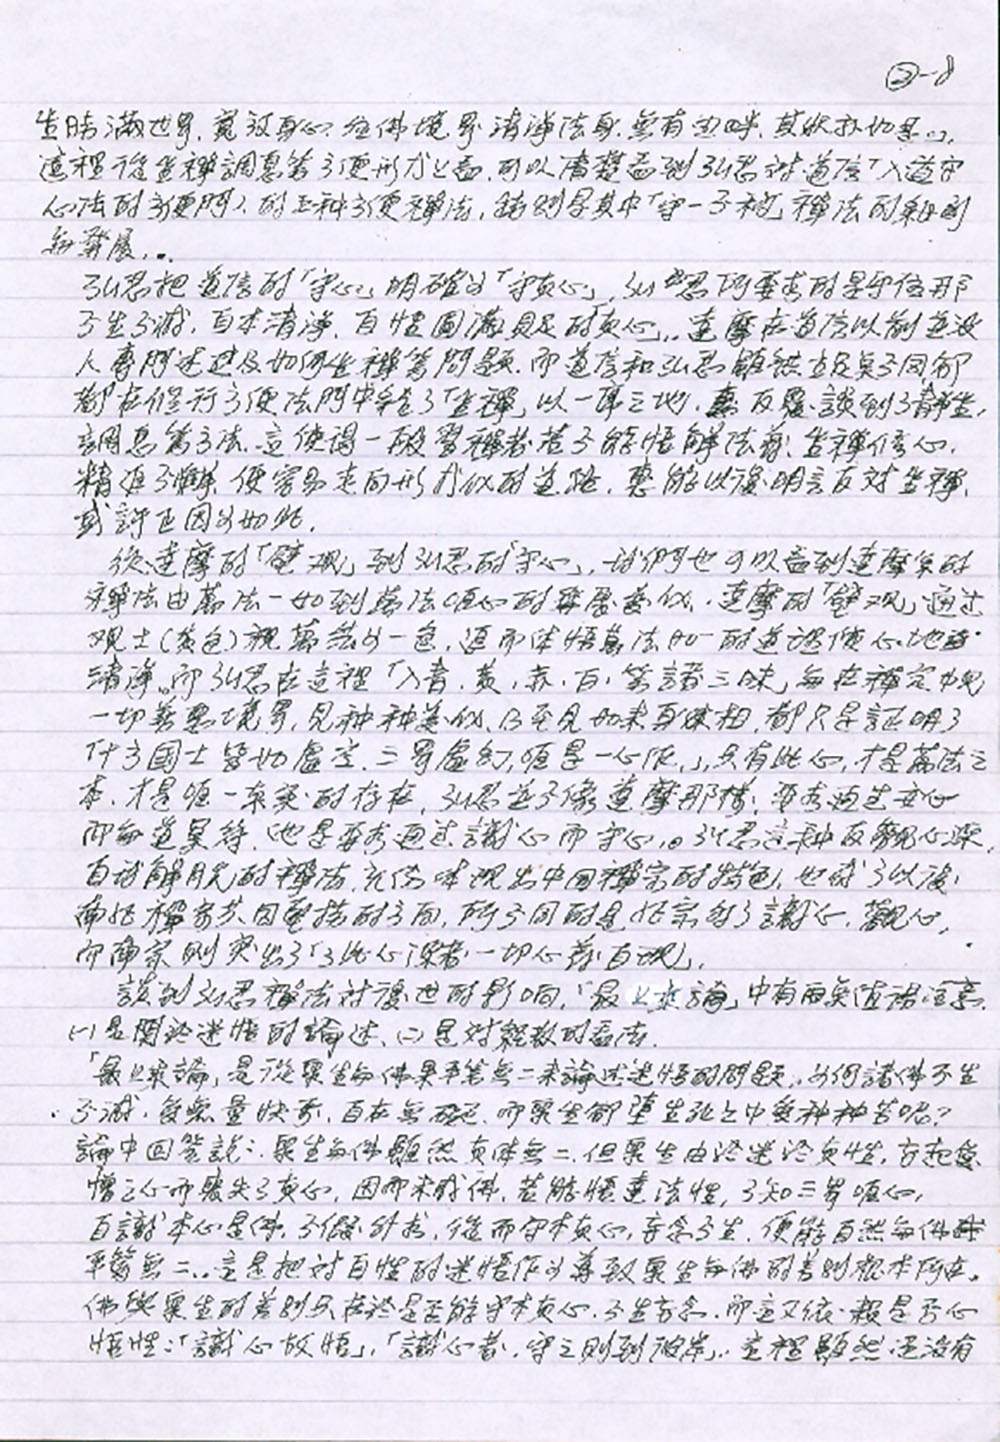 ②-8
身心滿世界,寬放身心,住佛境界,清淨法身,無有邊畔,其狀亦如是」,
這裡從坐禪調息等方便形式上看,可以清楚看到弘忍對道信「入道安
心法的方便門」的五種方便禪法,特別是其中「守一不移」禪法的繼承
與發展,..
弘忍把道信的「守心」明確為「守真心」,弘忍所要求的是守住那
不生不滅,自本清淨,自性圓滿具足的「真心」,.達摩在道信以前並沒
人專門述過及如何坐禪等問題,而道信和弘忍雖然立足點不同卻
都在修行方便法門中給了「坐禪」以一席之地,反覆談到了靜坐,
調息等方法,這使得一般習禪者若不能悟解法義,坐禪修心,
精進不懈,便容易走向形式化的道路,惠能以後明言反對坐禪,
或許正因為如此.
從達摩的「壁观」到弘忍的「守心」,我們也可以看到達摩系的
禪法由萬法一如到萬法唯心的發展變化,.達摩的「壁观」通过
观土(黃色)視萬法为一色,進而体悟萬法如一的道理使心地
清淨。而弘忍在這裡「入青,黃,赤,白,等諸三昧」每在禪定中見
一切善惡境界,見种种變化,乃至見如來真体相,都只是証明了
「十方國土皆如虛空,三界虛幻,唯是一心作,」只有此心,才是萬法之
本,才是唯一真实的存在,弘忍並不像達摩那樣,要求通过安心
而与道冥符,他是要求通过識心而守心,。弘忍這种反觀心源,
自我解脫的禪法,充份体現出中國禪宗的特色,也成了以後
南北禪宗共同堅持的方向,所不同的是北宗重了識心,觀心,
而南宗則突出了「了此心源者一切心義自現」,
談到弘忍禪法对後世的影响,「最上乘論」中有兩点值得注意.
(一)是関於迷悟的論述、(二)是对經教的看法.
「最上乘論」是從眾生与佛果平等無二來論述迷悟的問題,为何諸佛不生
不滅,受無量快樂,自在無礙,而眾生卻墮生死之中受种种苦呢?
論中回答說:.眾生与佛雖然真体無二,但眾生由於迷於真性,妄起愛
憎之心而喪失了真心,因而未成佛,若能悟達法性,了知三界唯心,
自識本心是佛,不假外求,從而守本真心,妄念不生,便能自然与佛
平等無二,.這是把对自性的迷悟作为導致眾生与佛的差別根本所在。
佛與眾生的差別只在於是否能守本真心,不生妄念,而這又依賴是否心
悟性:「識心故悟」,「識心者,守之則到彼岸」,.這裡顯然还没有